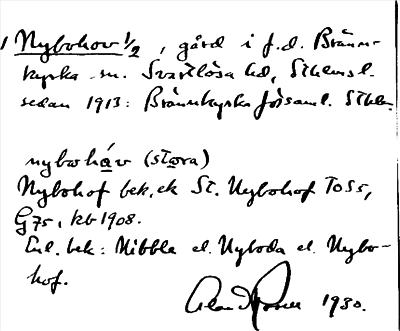 1 Nybohov 1/2, gård i f.d. Bränn-
kyrka sn. Svartlösa hd, Sthlmsl.
sedan 1913: Brännkyrka förs:aml. Sthlm
nybohåv (stora)
Nybohof bek. ek St. Nybohof To55,
G75, kb 1908.
Enl. bek: Nibbla el. Nyboda el. Nybo-
hof.
1930.